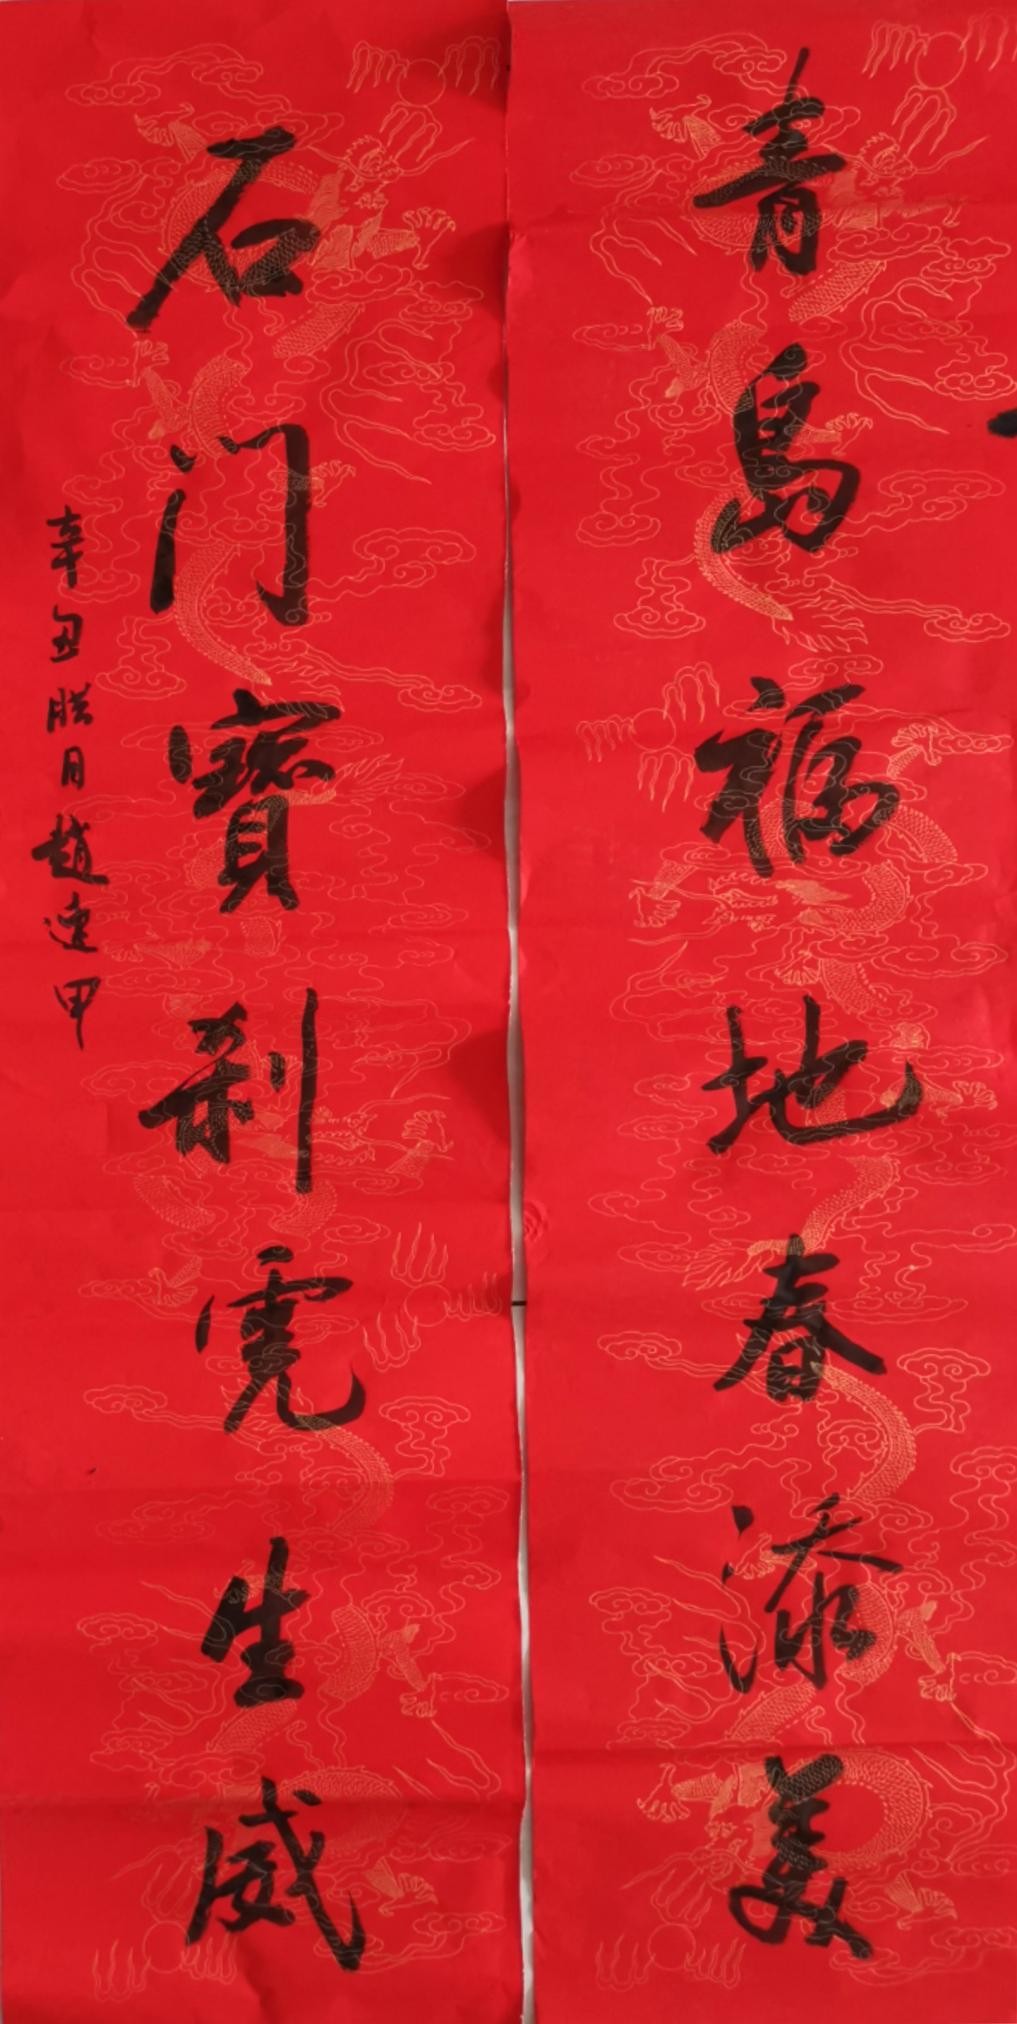 青岛福地春添美
石门寳刹虎生威
辛丑腊月趙连甲